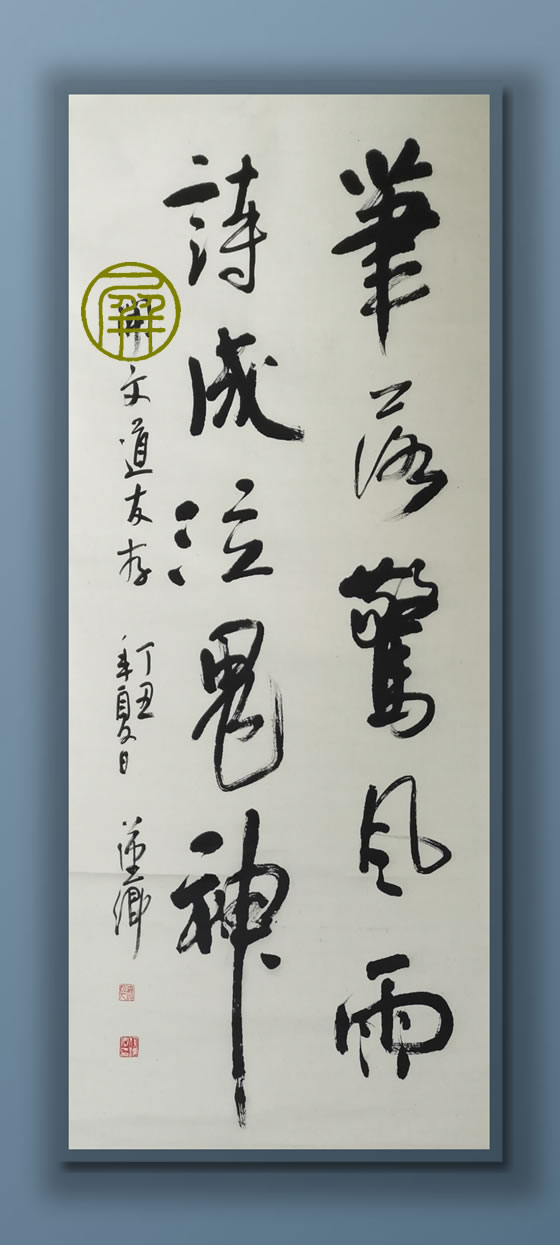 筆落驚風雨
詩成泣鬼神
文道友存
丁丑
年夏日